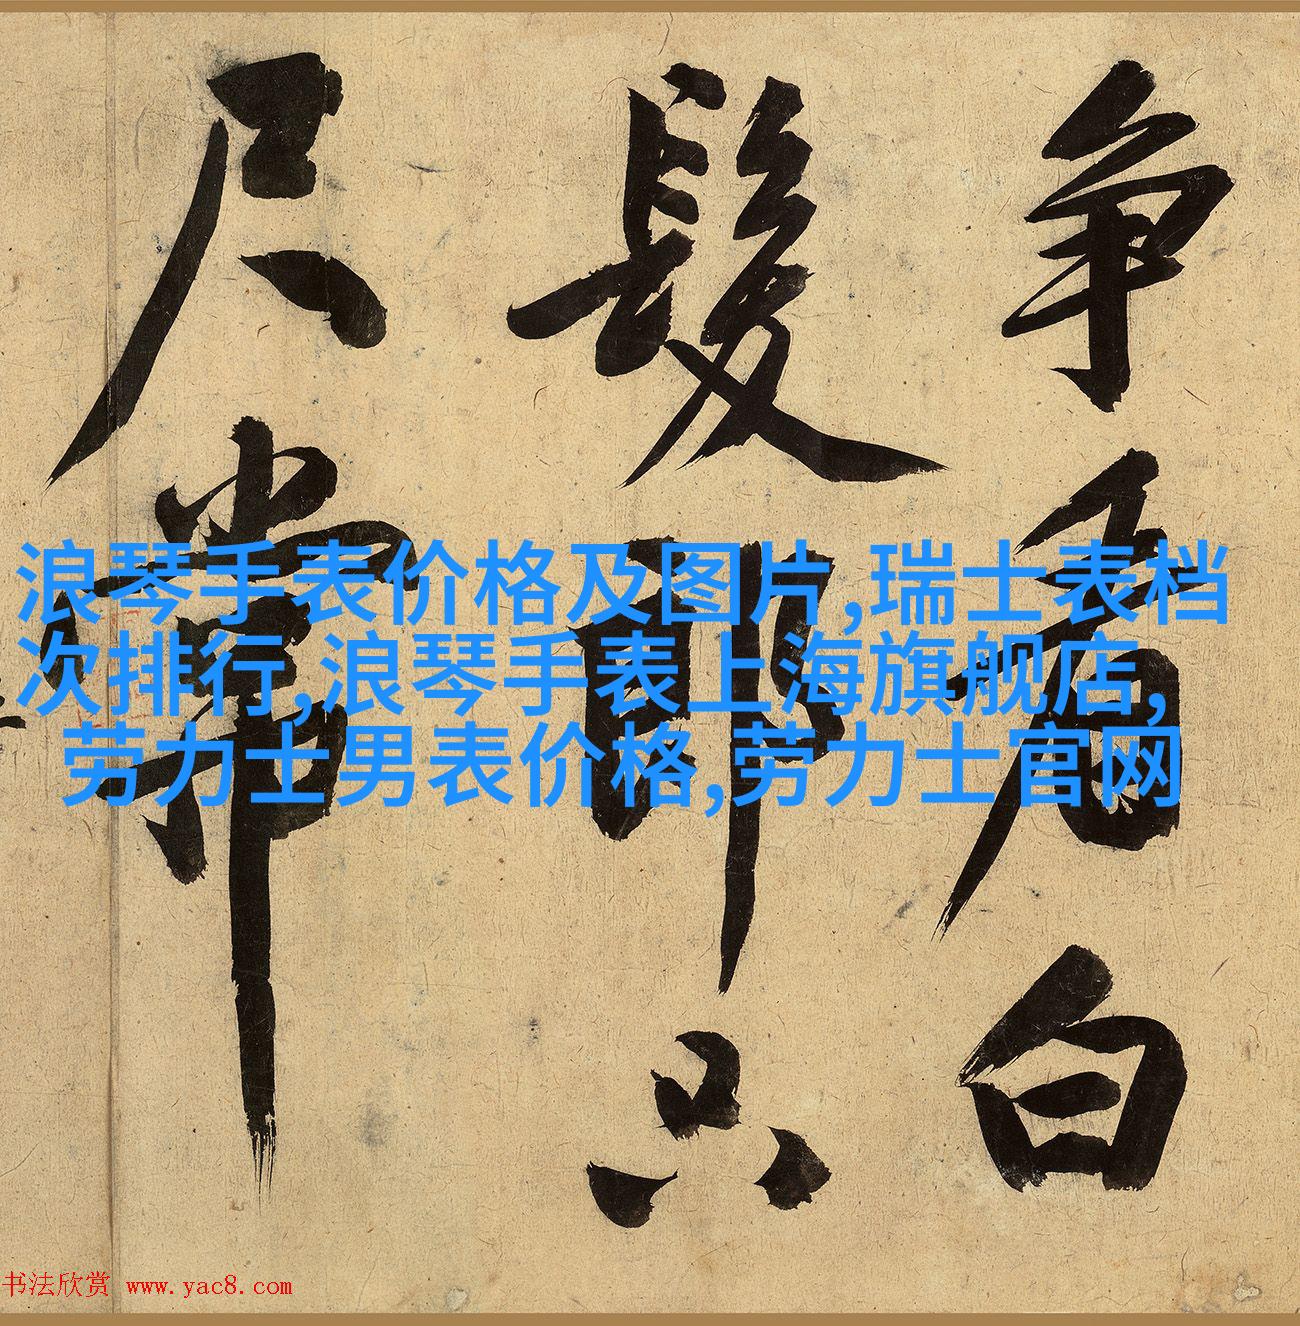 争看白
髮郎只
尺常
浪琴手表价格及图片,瑞士表档
次排行,浪琴手表上海旗舰店,
劳力士男表价格,劳力士官网
书法欣赏 www.yac8.com